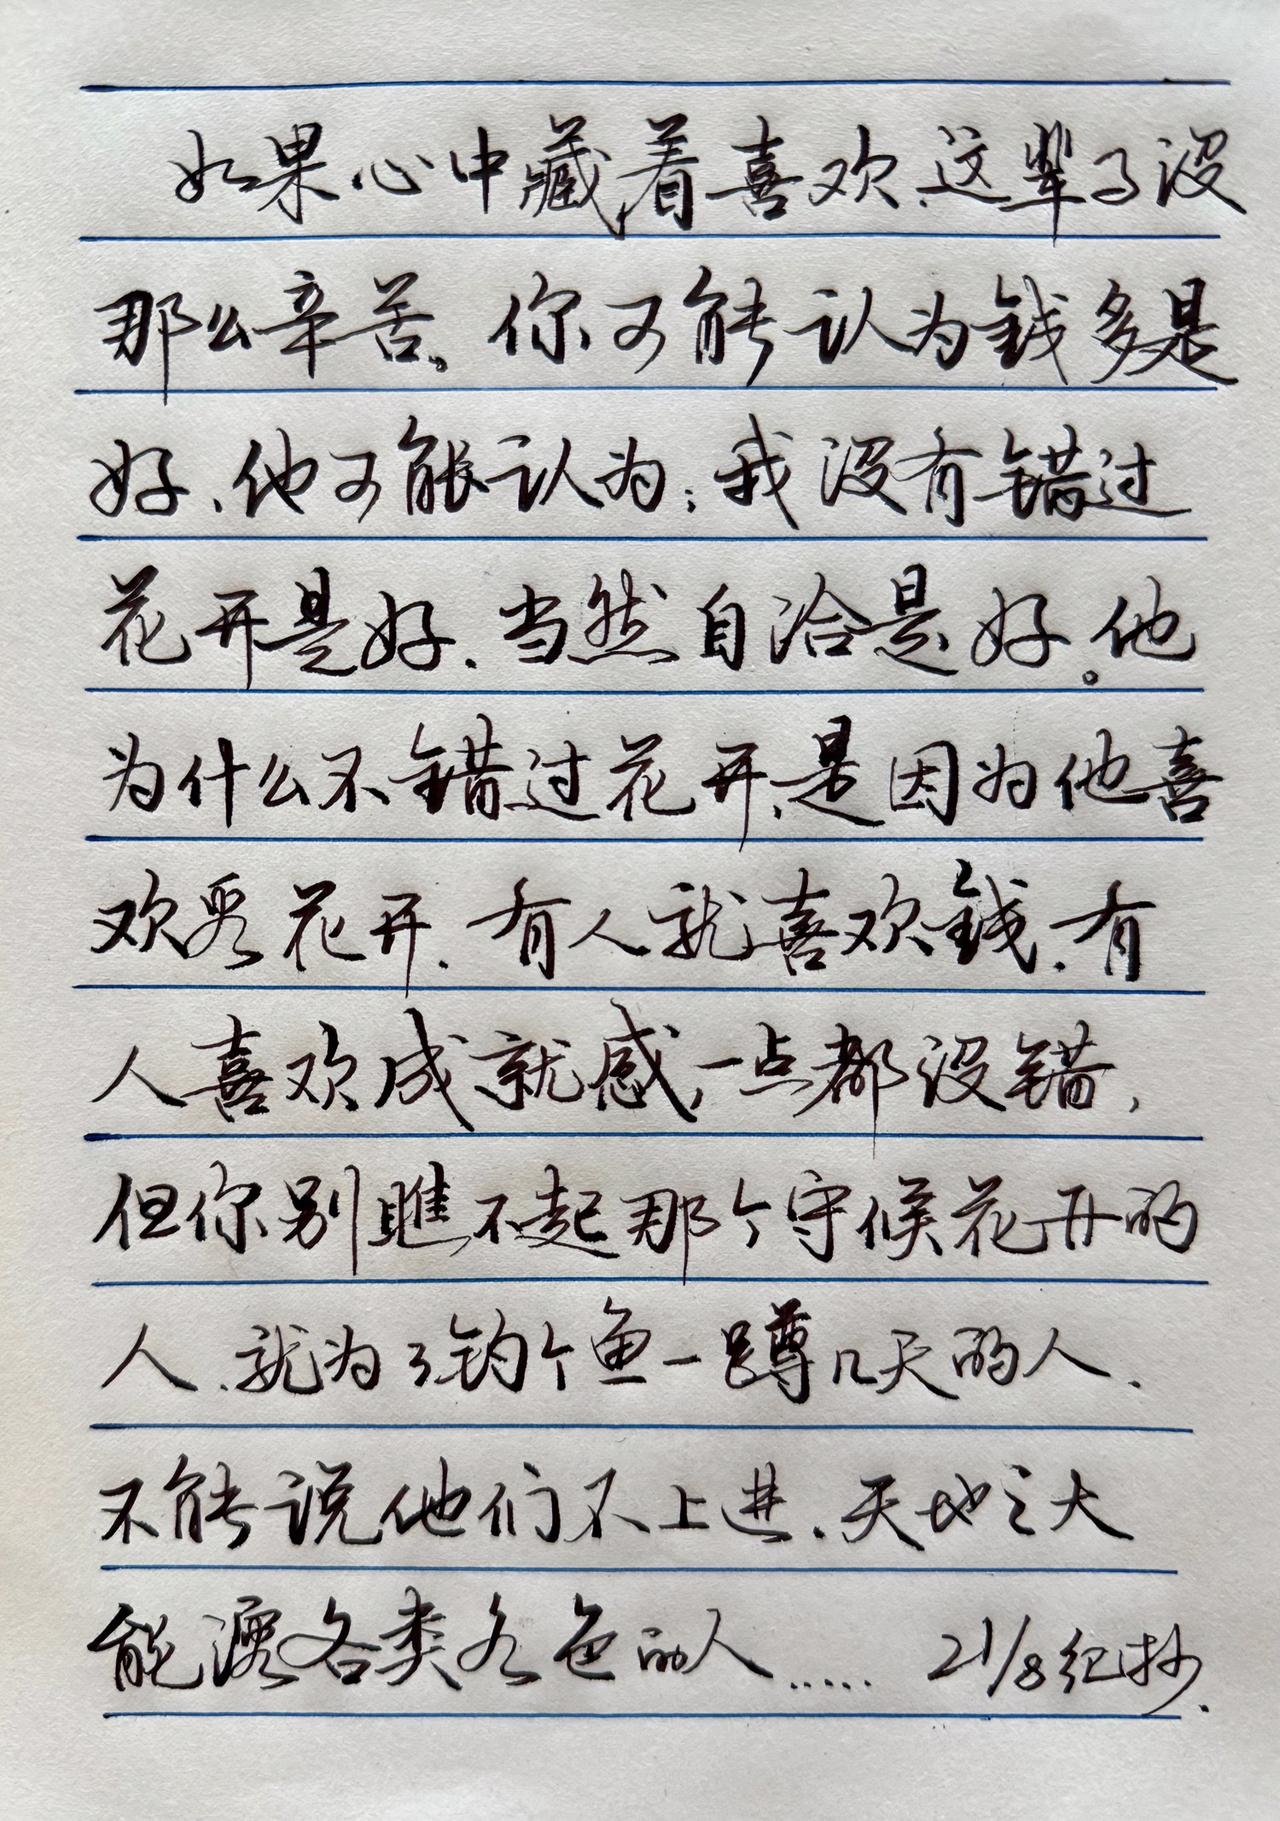 如果心中藏着喜欢、这辈子没
那么辛苦。你可能认为钱多是
好、他可能认为：我没有错过
花开是好、当然自洽是好。他
为什么不错过花开、是因为他喜
欢看花开、有人就喜欢钱、有
人喜欢成就感，一点都没错，
但你别瞧不起那个守候花开的
人、就为了钓个鱼一蹲几天的人、
不能说他们不上进、天地之大
能 各类各色的人…… 21/8纪抄.